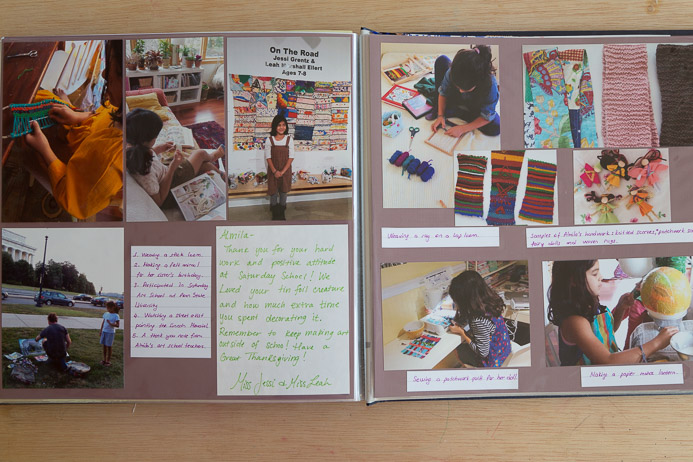 On The Road
Jessi Orentz &
Leah Marshall Eilert
Ages 7-8
1. Weaving a stick loom.
2. Making a felt animal
for her sister's birthday.
3. Participated in Saturday
Art School at Penn State
University.
4. Watching a street artist
painting the Lincoln Memorial.
5. A thank you note from
Almila's art school teachers.
Almila-
Thank you for your hard
work and positive attitude
at Saturday School! We
loved your tin foil creature
and how much extra time
you spent decorating it.
Remember to keep making art
outside of school! Have a
Great Thanksgiving!
Miss Jessi & Miss Leah
Weaving a rug on a lap loom.
Samples of Almila's handwork: knitted scarves, patchwork
fairy dolls and woven rugs.
Sewing a patchwork quilt for her doll.
Making a paper mache lantern.